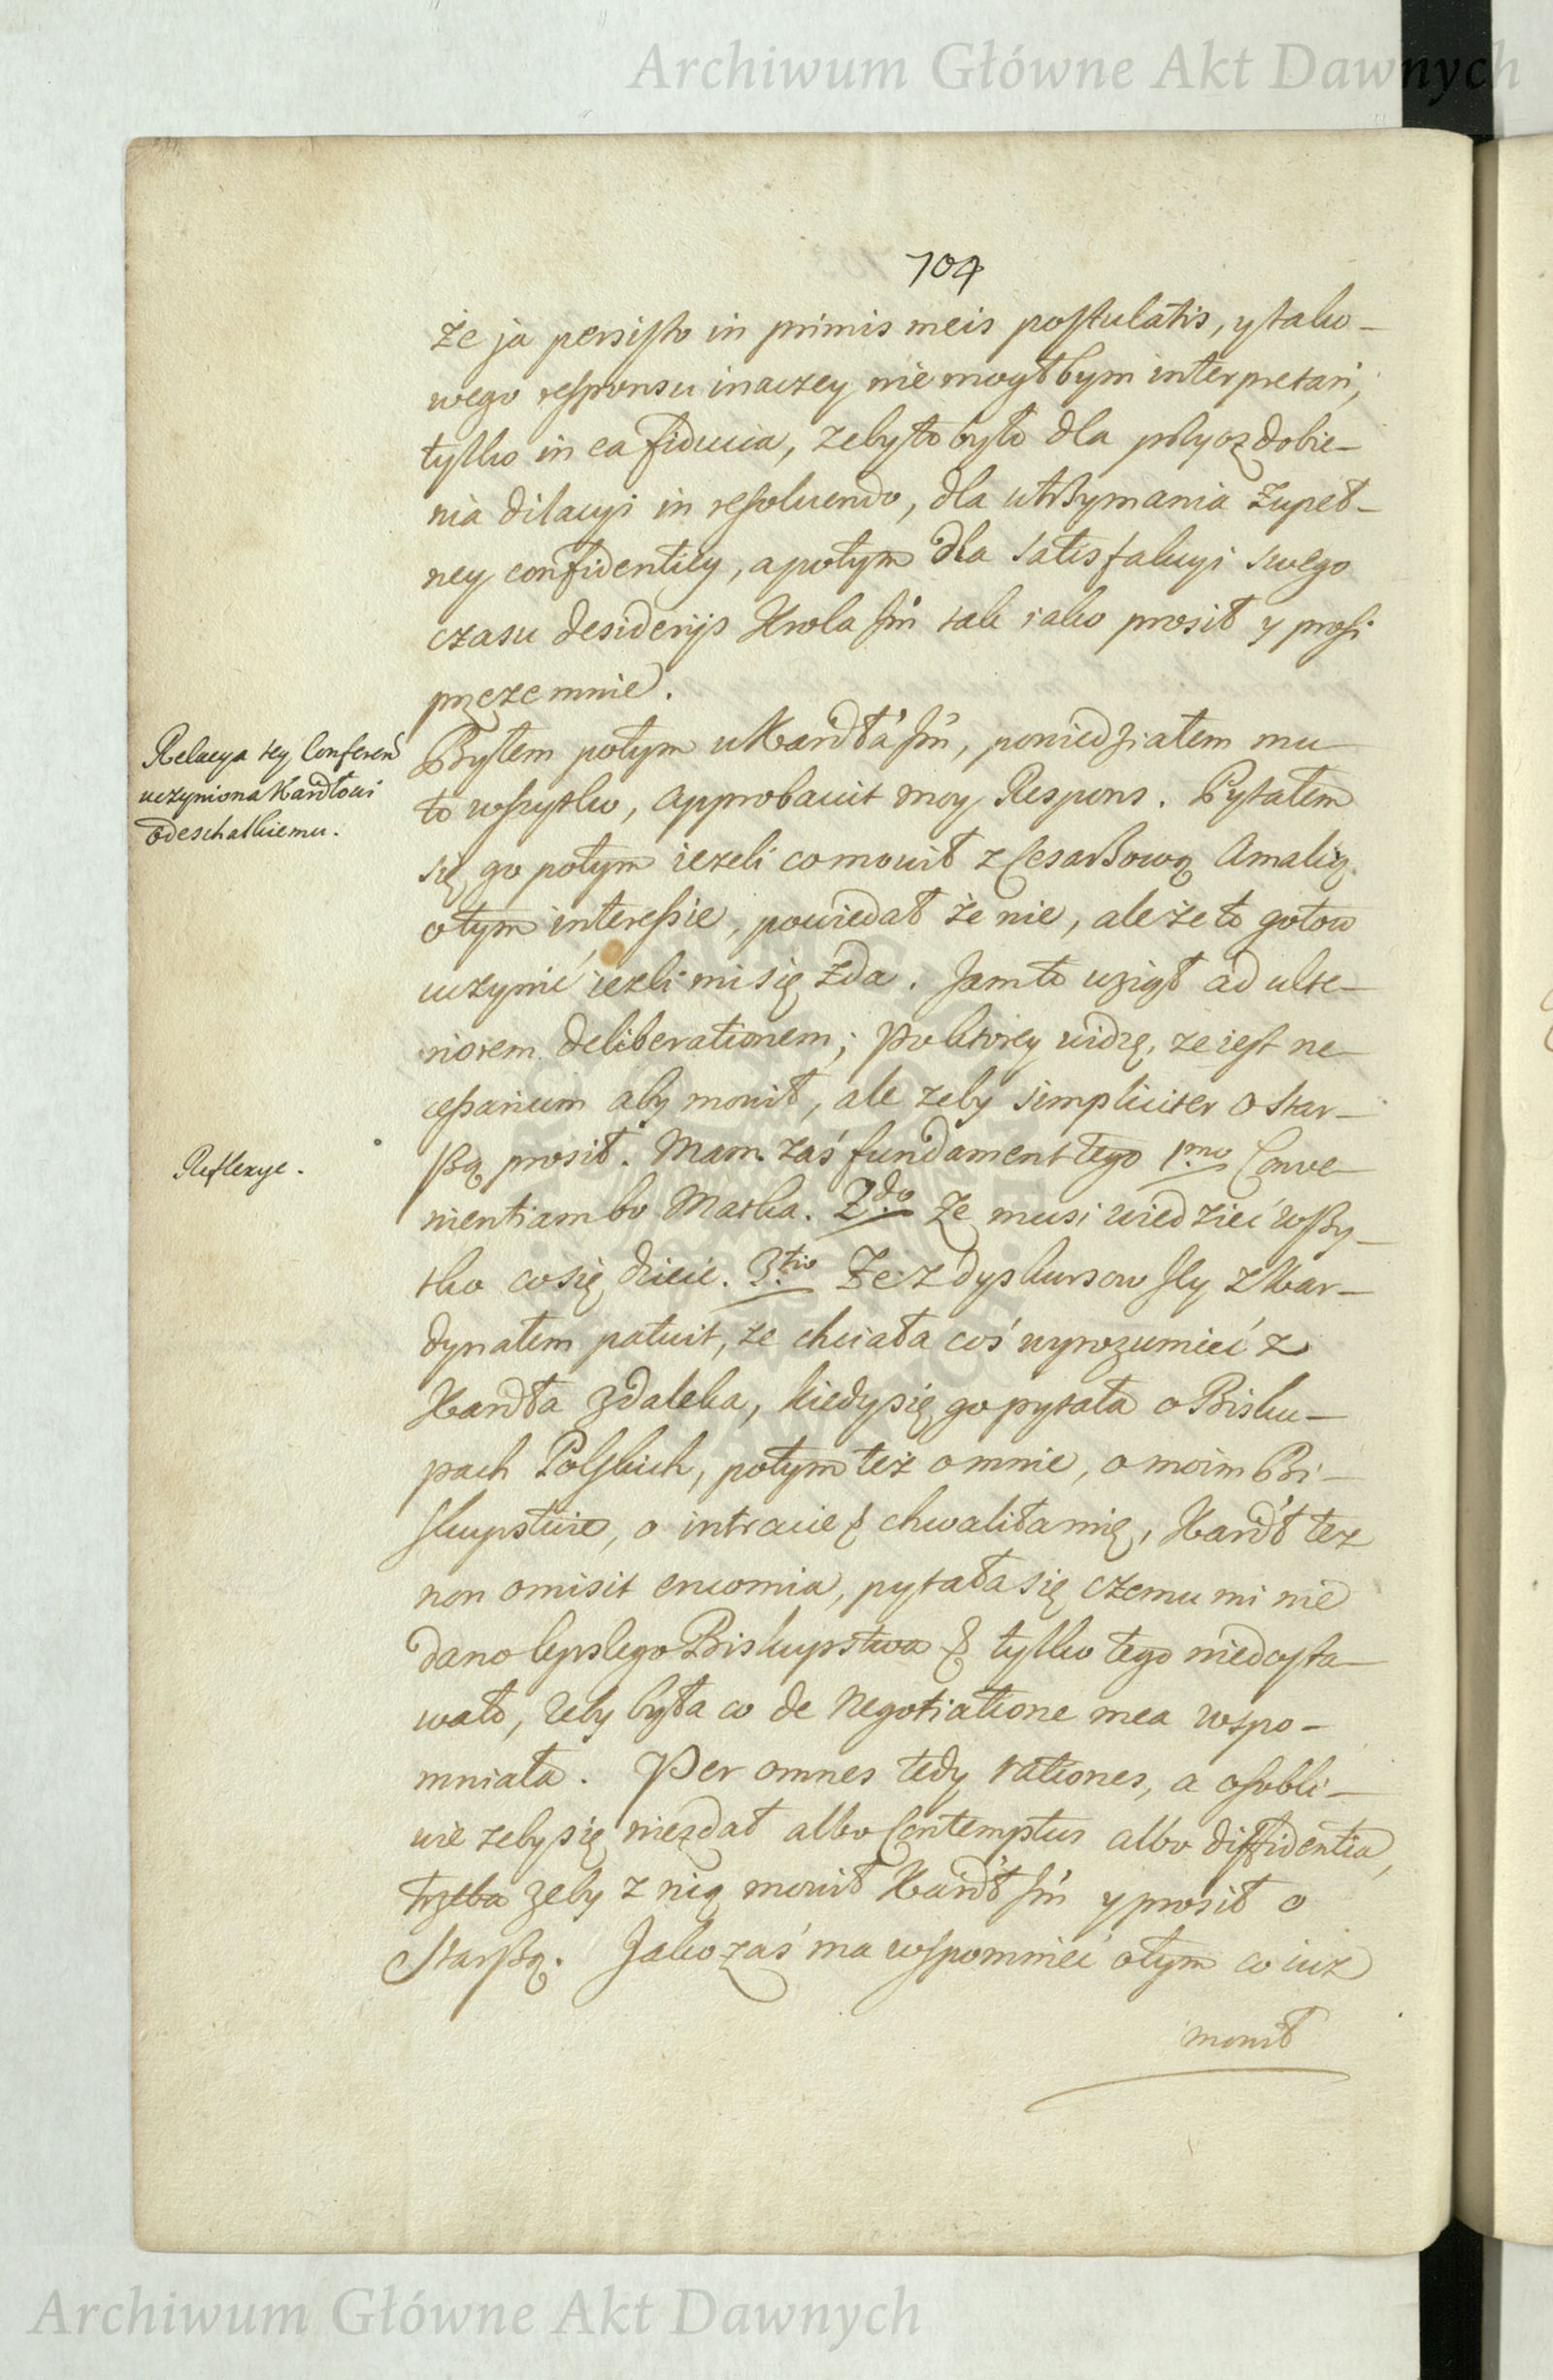 Archiwum Główne Akt Dawnych
704
że ja persisto in primis meis postulatis, y tako-
wego responsu inaczey nie mogłbym interpretari,
tylko in ea fiducia, zeby to było dla przyozdobie-
nia dilacyi in resoluendo, dla utrzymania zupeł-
ney confidentiey, a potym dla satisfakcyi swego
czasu desiderijs Krola Jm tak iako prosił y prosi
przezemnie.
Relacya tey Conferen
uczyniona Kardłowi
Odeschalkiemu.
Byłem potym u Kardła Jm, powiedziałem mu
to wszystko, approbauit moy Respons. Pytałem
się go potym iezeli co mowił z Cesarzową Amalią
o tym interessie, powiedał że nie, ale że to gotow
uczynić iezli mi się zda. Jam to wziął ad ulte-
riorem deliberationem; po ktorey widzę, ze iest ne-
cessarium aby mowił, ale zeby simpliciter o star-
szą prosił. Mam zaś fundament tego 1mo Conve-
Reflexye.
nientiam bo Matka. 2do Ze musi wiedzieć wszy-
tko co się dzieie. 3tio Że z dyskursow Jey z Kar-
dynałem patuit, ze chciała coś wyrozumieć z
Kardła zdaleka, kiedy się go pytała o Bisku-
pach Polskich, potym też o mnie, o moim Bi-
skupstwie, o intracie & chwaliła mię, Kardł tez
non omisit encomia, pytała się czemu mi nie
dano lepszego Biskupstwa & tylko tego niedosta-
wało, zeby była co de Negotiatione mea wspo-
mniała. Per omnes tedy rationes, a osobli-
wie zeby się niezdał albo Contemptus albo diffidentia,
trzeba zeby z nią mowił Kardł Jm y prosił o
Starszą. Jako zaś ma wspomnieć o tym co iuz
mowił
Archiwum Główne Akt Dawnych